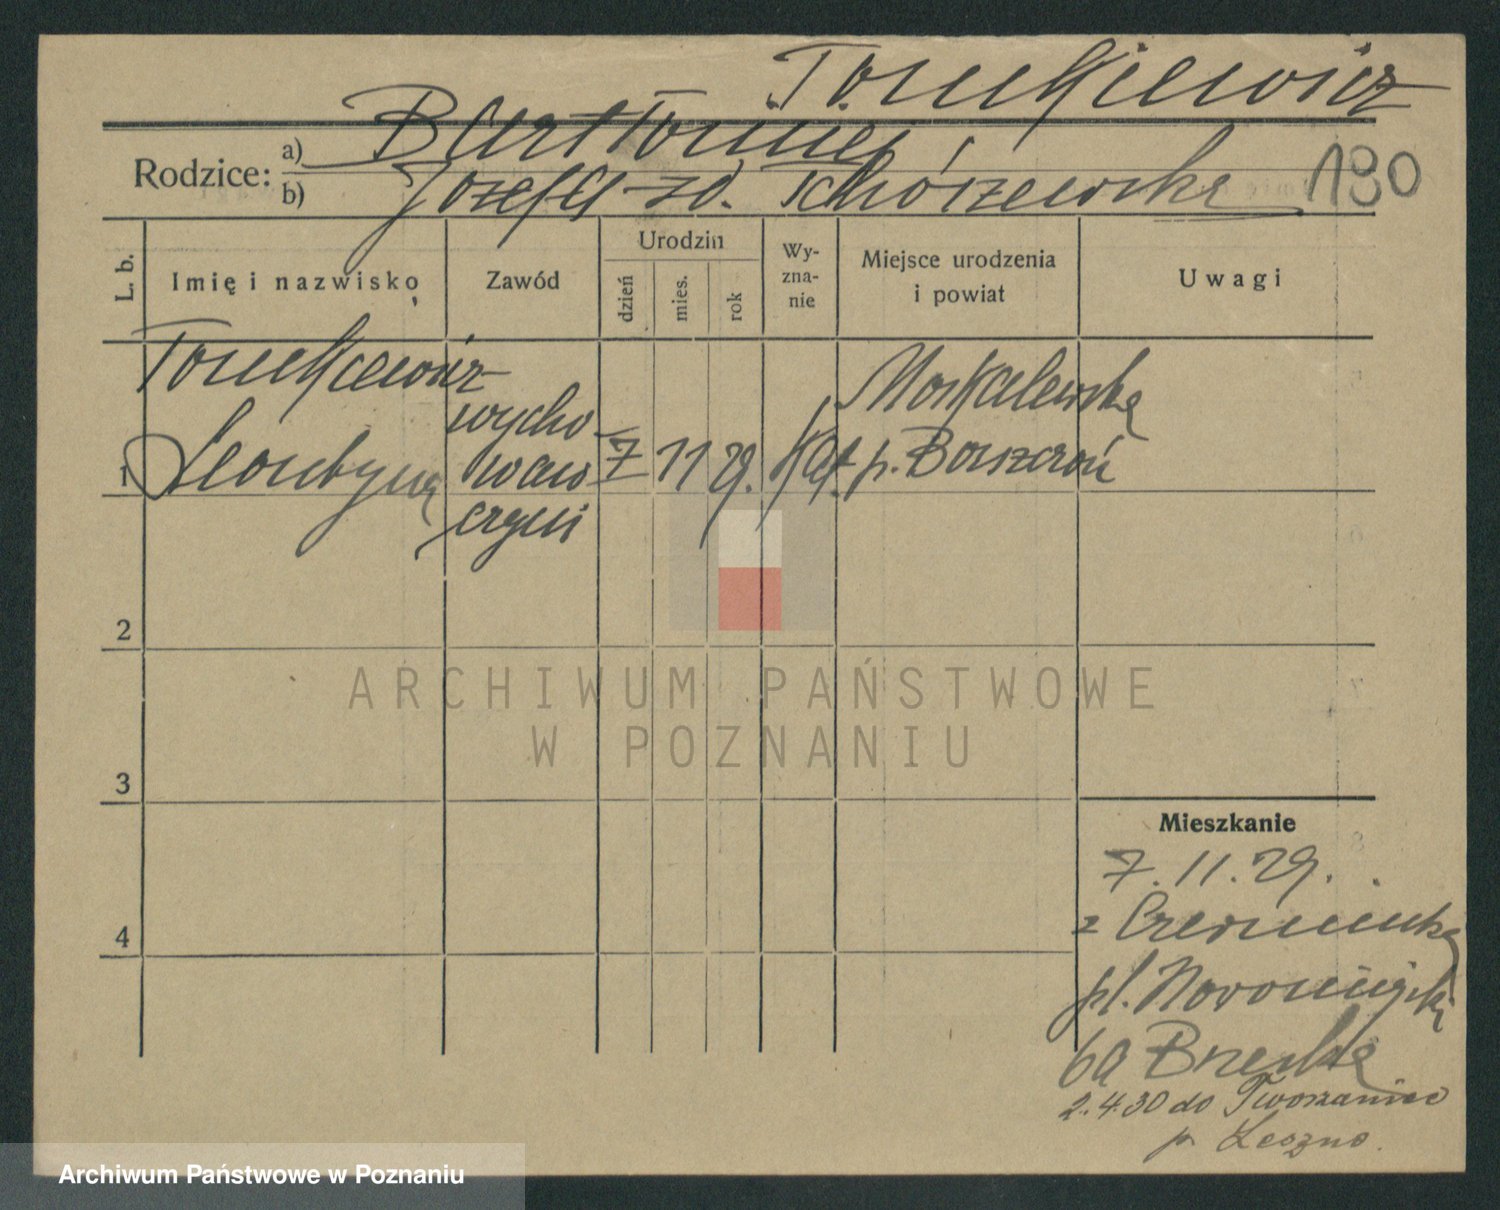 Tomkiewicz
Rodzice: a) Bartłomiej
b) Józefa zd. Tchórzewska 190
L. b.
Imię i nazwisko
Zawód
Urodzin
dzień
mies.
rok
Wy-
zna-
nie
Miejsce urodzenia
i powiat
Uwagi
Tomkiewicz
1 Leontyna
wycho-
waw-
czyni
7 11 29.
Kat.
Moskalewka
p.
2
3
4
Mieszkanie
7. 11. 29.
z
pl. Nowomiejski
6a
2.4.30 do Tworzanice
p. Leszno.
ARCHIWUM PAŃSTWOWE
W POZNANIU
Archiwum Państwowe w Poznaniu